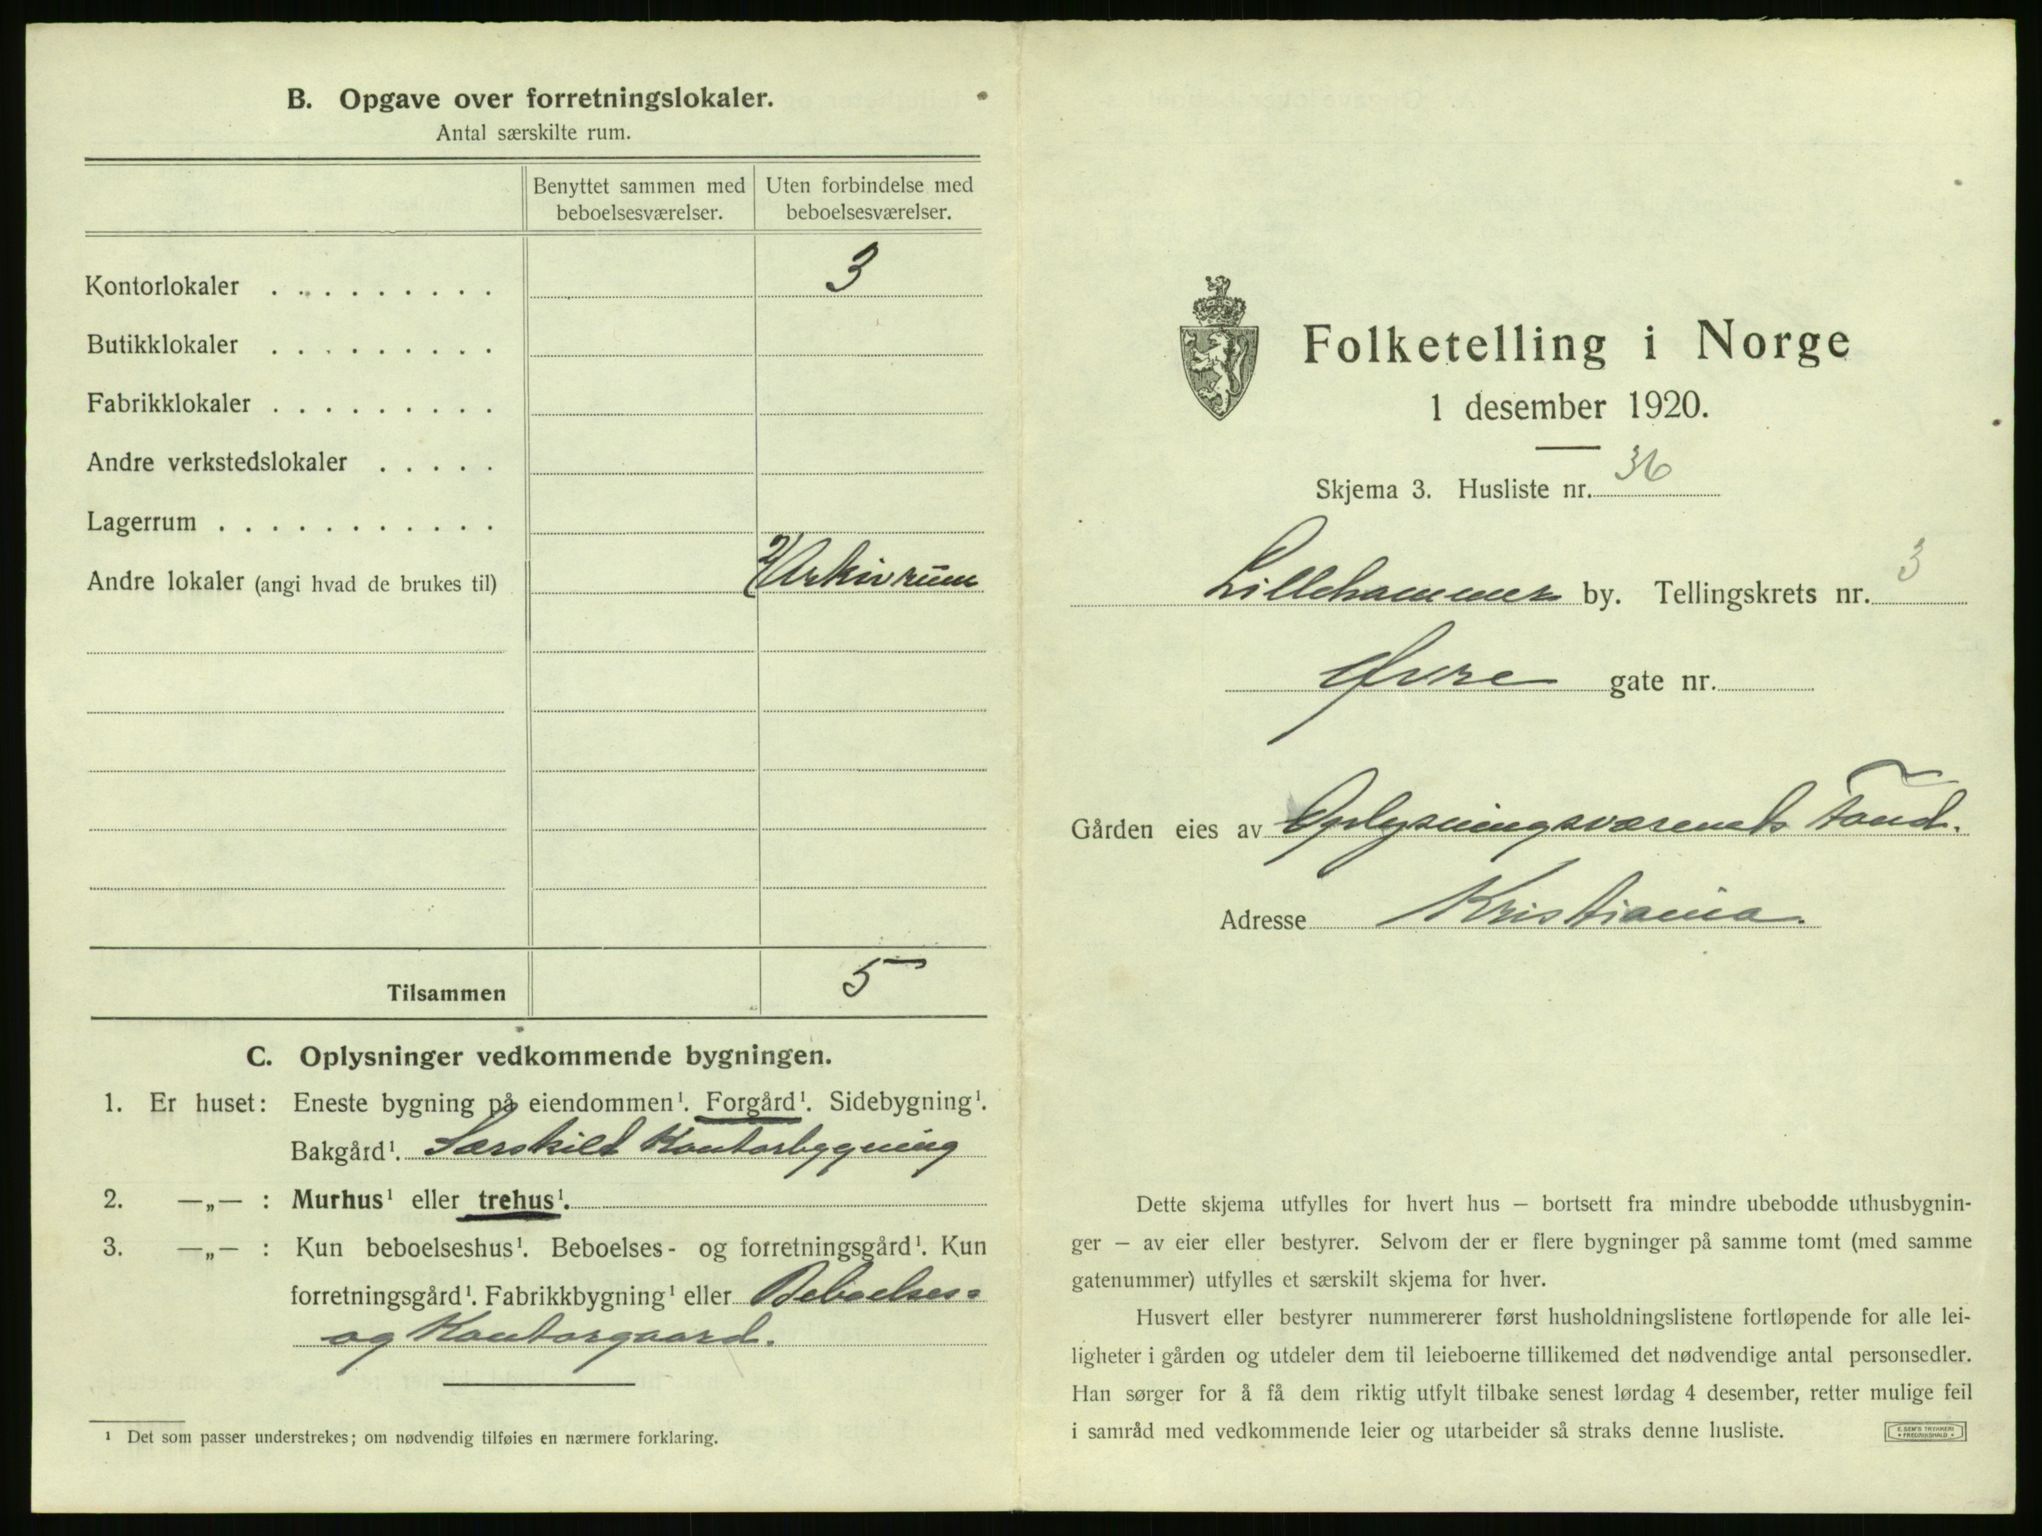 B. Opgave over forretningslokaler.
Antal særskilte rum.
Benyttet sammen med beboelsesværelser.
Uten forbindelse med beboelsesværelser.
Kontorlokaler . . . . . . . . . 3
Butikklokaler . . . . . . . . .
Fabrikklokaler . . . . . . . . .
Andre verkstedslokaler . . . . .
Lagerrum . . . . . . . . . . .
Andre lokaler (angi hvad de brukes til) 2/Arkivrum
Tilsammen 5
C. Oplysninger vedkommende bygningen.
1. Er huset: Eneste bygning på eiendommen¹. Forgård¹. Sidebygning¹.
Bakgård¹. Særskilt Kontorbygning
2. —„— : Murhus¹ eller trehus¹.
3. —„— : Kun beboelseshus¹. Beboelses- og forretningsgård¹. Kun
forretningsgård¹. Fabrikkbygning¹ eller Beboelses=
og Kontorgaard.
¹ Det som passer understrekes; om nødvendig tilføies en nærmere forklaring.
Folketelling i Norge
1 desember 1920.
Skjema 3. Husliste nr. 36
Lillehammer by. Tellingskrets nr. 3
Øvre gate nr.
Gården eies av Oplysningsværenets Fond.
Adresse Kristiania.
Dette skjema utfylles for hvert hus – bortsett fra mindre ubebodde uthusbygnin-
ger – av eier eller bestyrer. Selvom der er flere bygninger på samme tomt (med samme
gatenummer) utfylles et særskilt skjema for hver.
Husvert eller bestyrer nummererer først husholdningslistene fortløpende for alle lei-
ligheter i gården og utdeler dem til leieboerne tillikemed det nødvendige antal personsedler.
Han sørger for å få dem riktig utfylt tilbake senest lørdag 4 desember, retter mulige feil
i samråd med vedkommende leier og utarbeider så straks denne husliste.
E. SEM'S TRYKKERI
• FREDRIKSHALD •